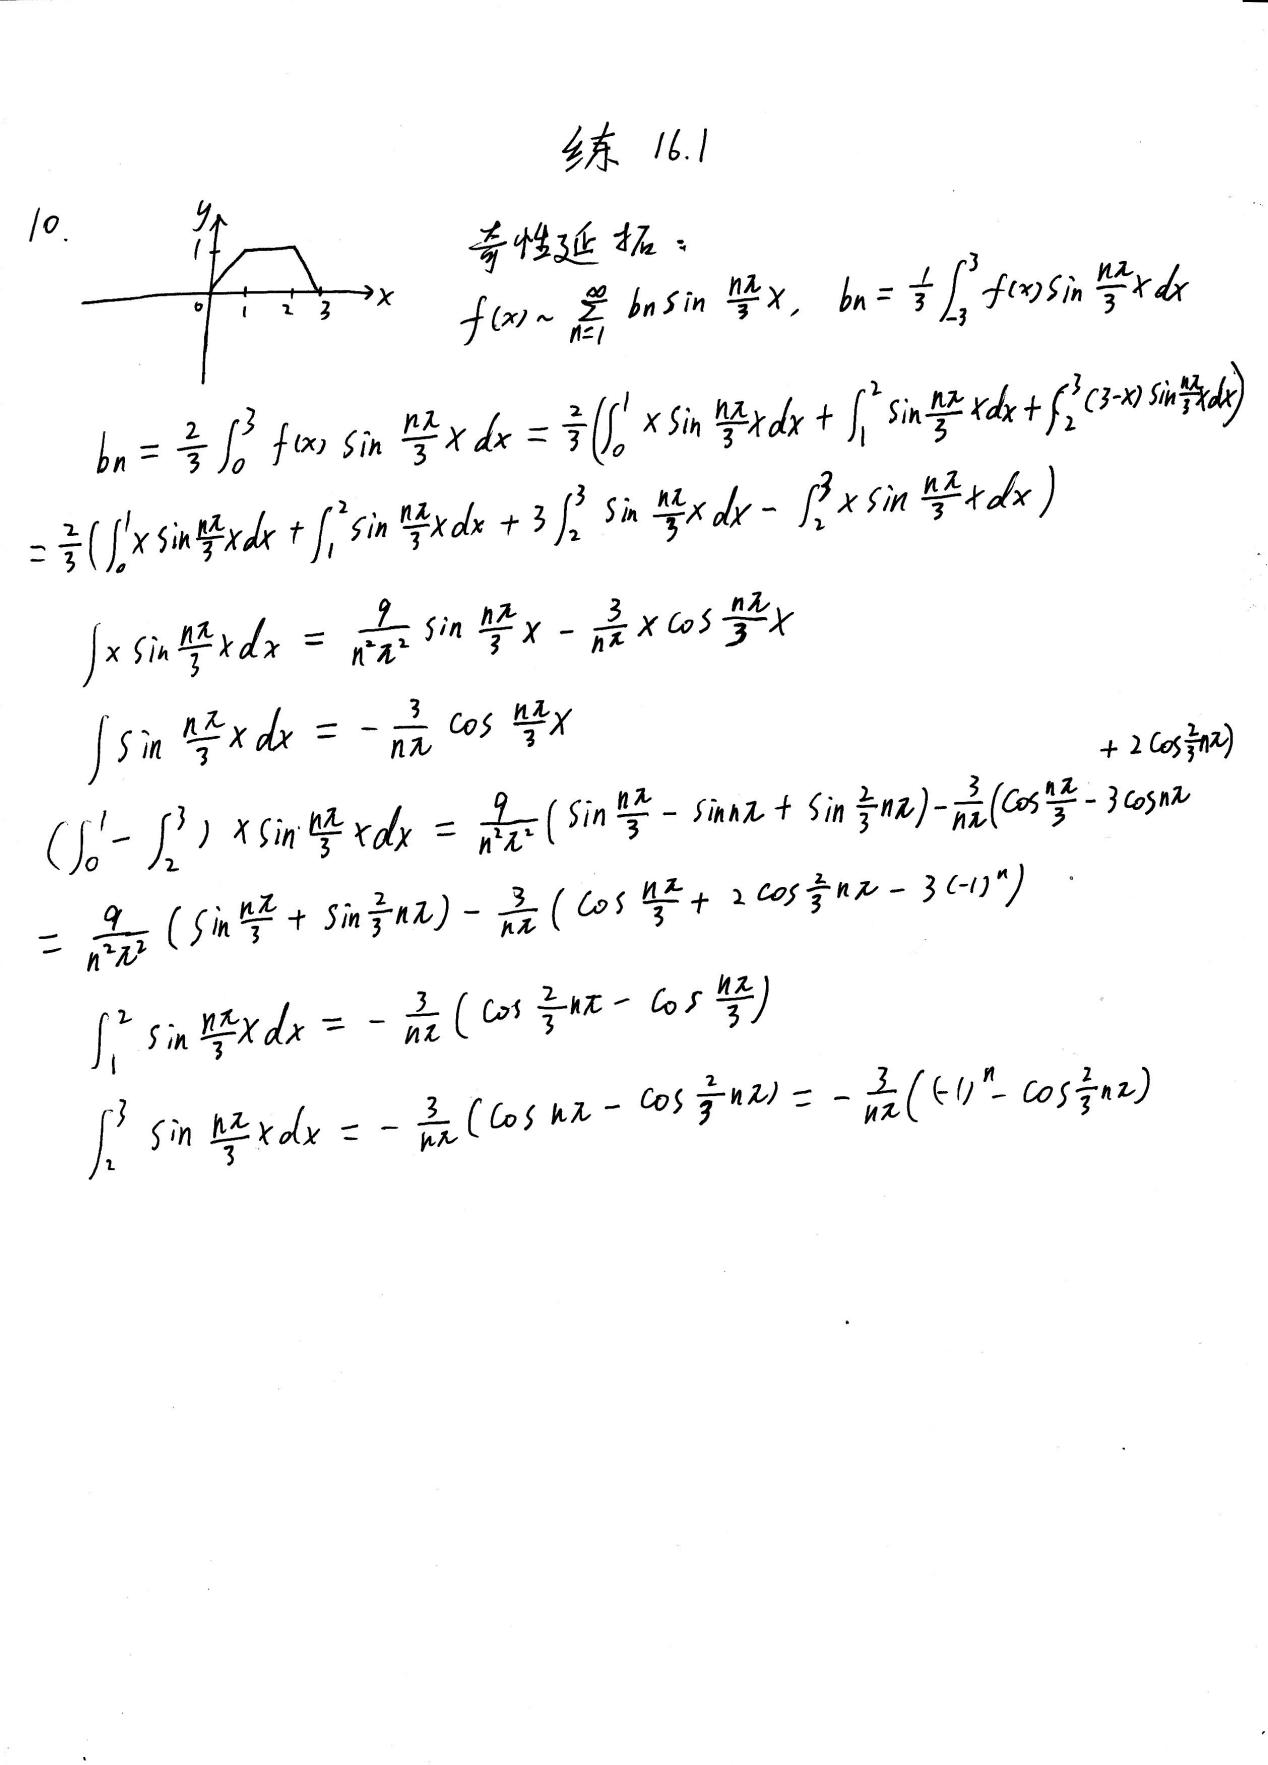 练 16.1
10.
y
1
0 1 2 3 x
奇性延拓：
f(x) ~ ∑_{n=1}^{∞} bn sin nπ/3 x, bn = 1/3 ∫_{-3}^{3} f(x) sin nπ/3 x dx
bn = 2/3 ∫_0^3 f(x) sin nπ/3 x dx = 2/3 (∫_0^1 x sin nπ/3 x dx + ∫_1^2 sin nπ/3 x dx + ∫_2^3 (3-x) sin nπ/3 x dx)
= 2/3 (∫_0^1 x sin nπ/3 x dx + ∫_1^2 sin nπ/3 x dx + 3 ∫_2^3 sin nπ/3 x dx - ∫_2^3 x sin nπ/3 x dx)
∫ x sin nπ/3 x dx = 9/n²π² sin nπ/3 x - 3/nπ x cos nπ/3 x
∫ sin nπ/3 x dx = - 3/nπ cos nπ/3 x
(∫_0^1 - ∫_2^3) x sin nπ/3 x dx = 9/n²π² (sin nπ/3 - sin nπ + sin 2/3 nπ) - 3/nπ (cos nπ/3 - 3 cos nπ
+ 2 cos 2/3 nπ)
= 9/n²π² (sin nπ/3 + sin 2/3 nπ) - 3/nπ (cos nπ/3 + 2 cos 2/3 nπ - 3 (-1)^n)
∫_1^2 sin nπ/3 x dx = - 3/nπ (cos 2/3 nπ - cos nπ/3)
∫_2^3 sin nπ/3 x dx = - 3/nπ (cos nπ - cos 2/3 nπ) = - 3/nπ ((-1)^n - cos 2/3 nπ)